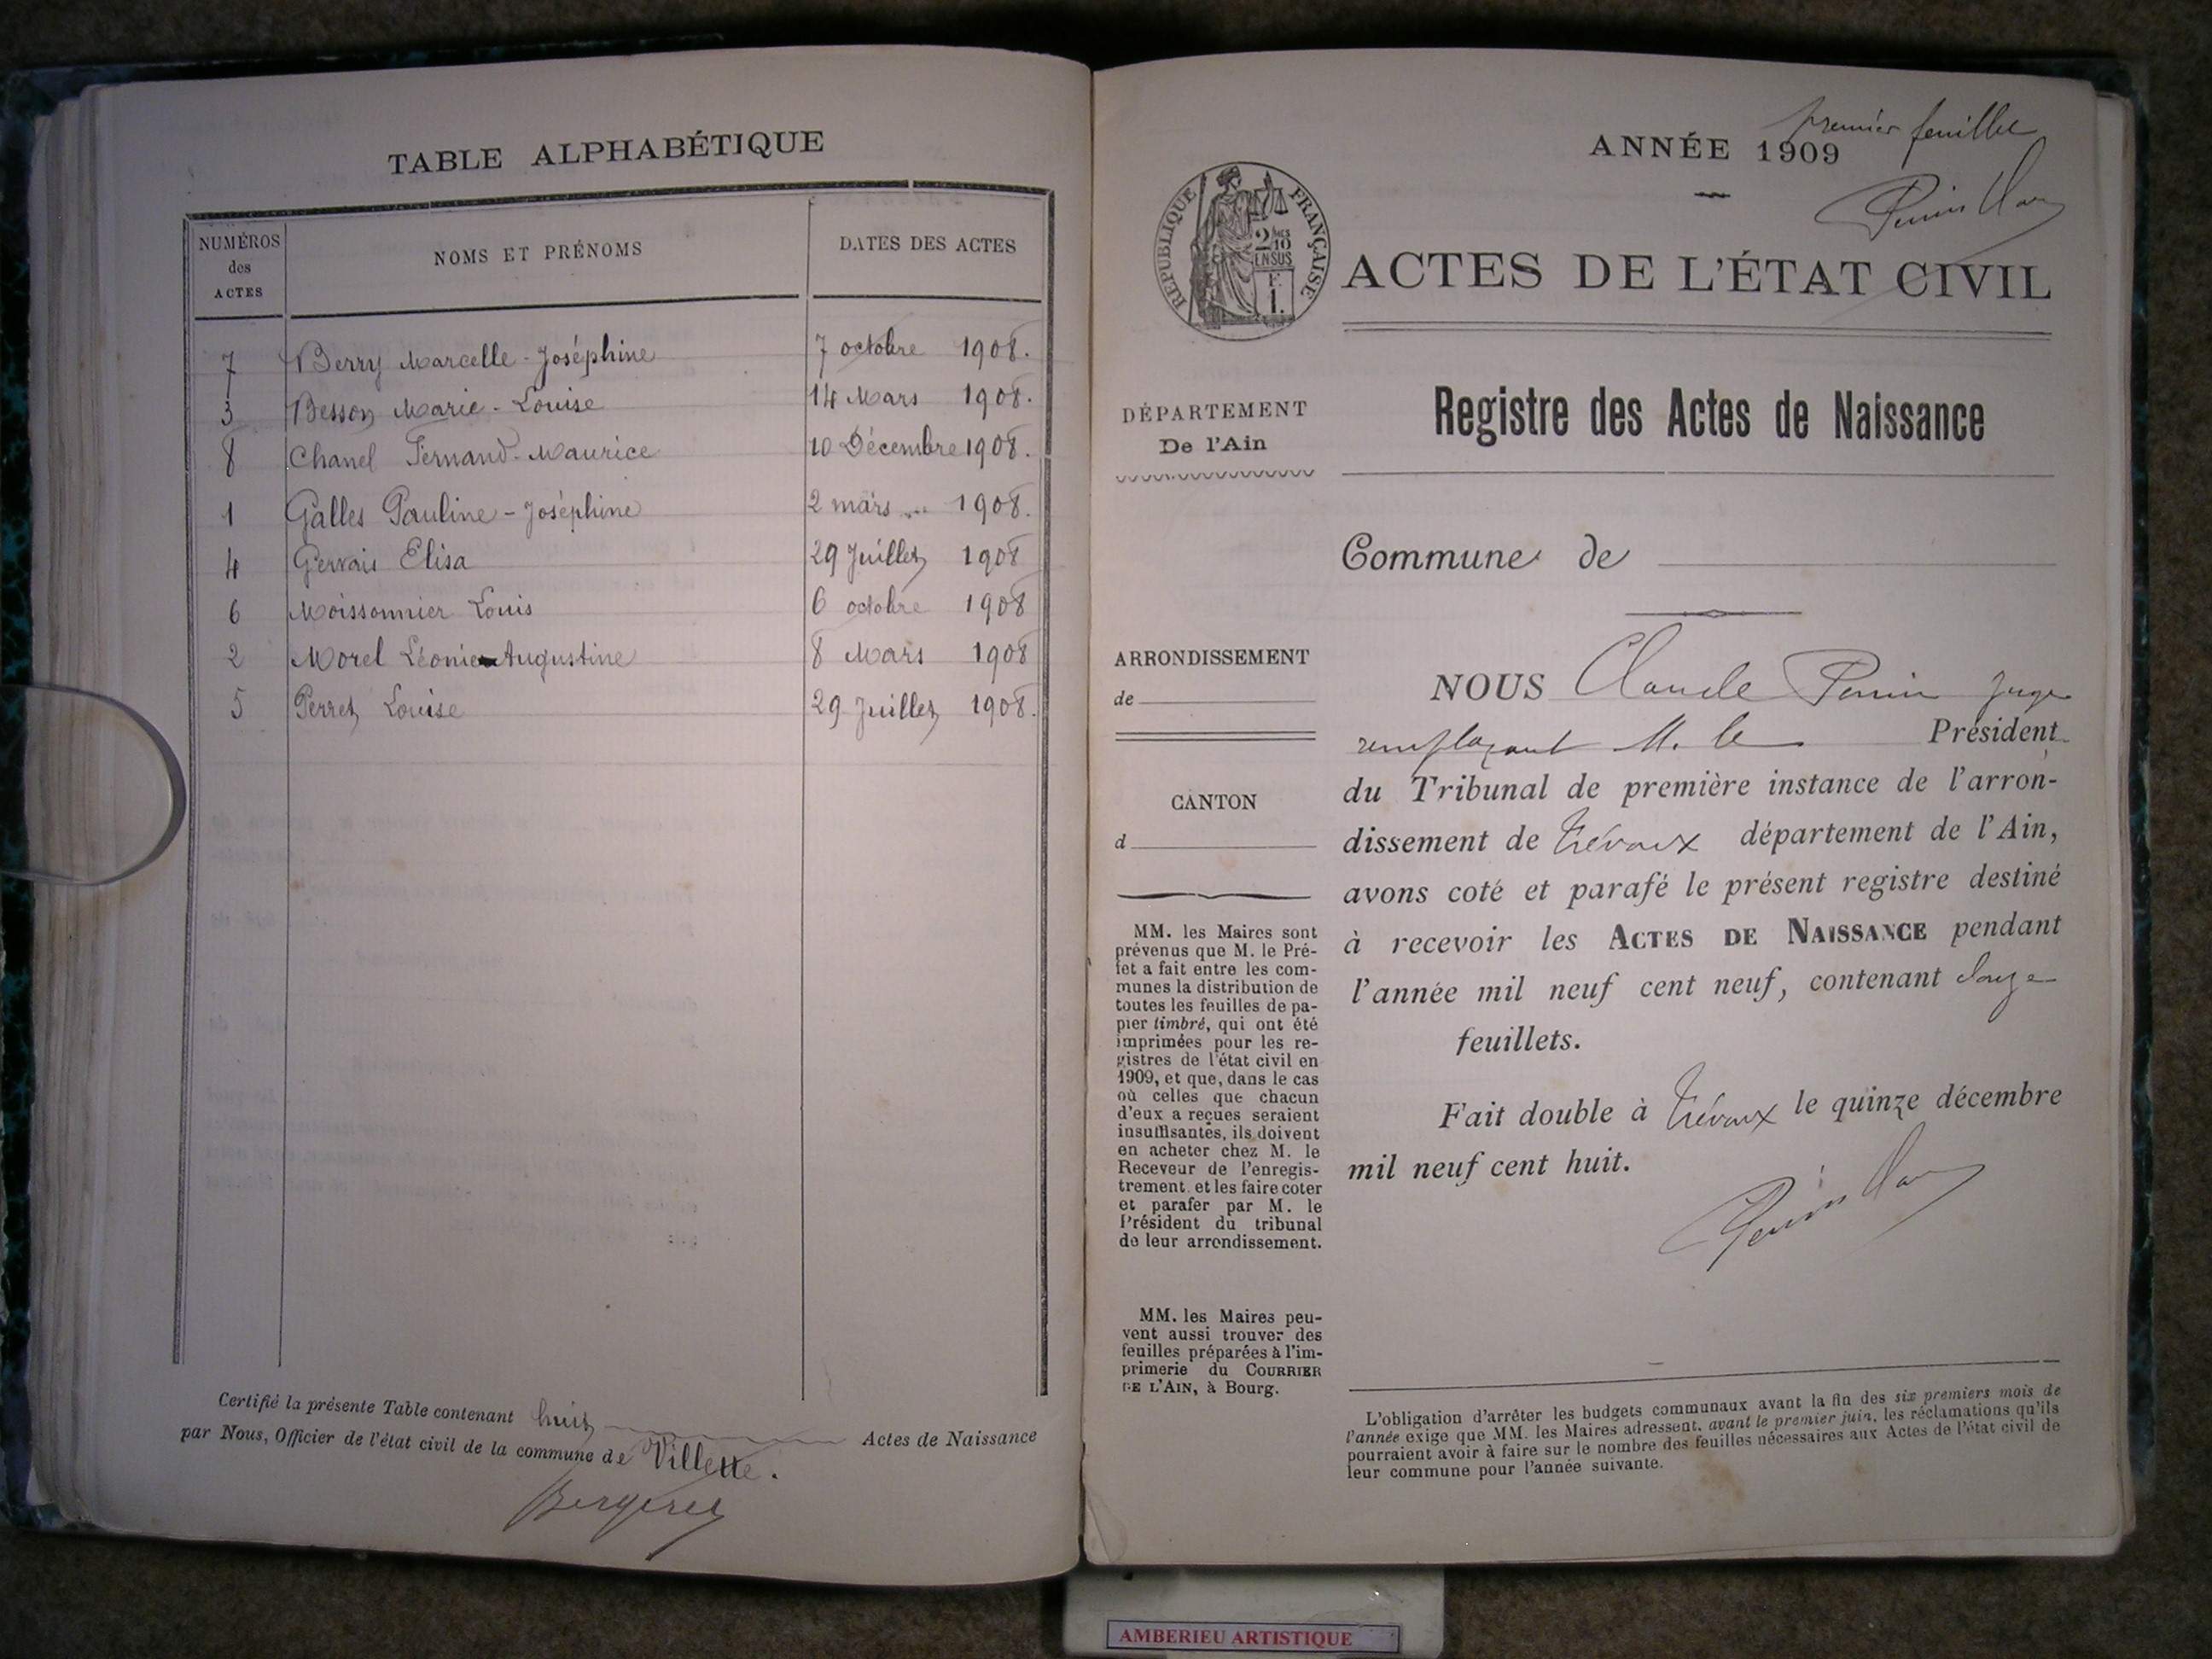 TABLE ALPHABÉTIQUE
NUMÉROS des ACTES
NOMS ET PRÉNOMS
DATES DES ACTES
7 Berry Marcelle-Joséphine 7 octobre 1908.
3 Besson Marie-Louise 14 Mars 1908.
8 Chanel Fernand-Maurice 10 Décembre 1908.
1 Galles Pauline-Joséphine 2 mars 1908.
4 Gervais Elisa 29 Juillet 1908
6 Moissonnier Louis 6 octobre 1908
2 Morel Léonie-Augustine 8 Mars 1908
5 Perret Louise 29 Juillet 1908.
Certifié la présente Table contenant huit Actes de Naissance
par Nous, Officier de l'état civil de la commune de Villette.
Bergeret
premier feuillet
ANNÉE 1909
Perrin
RÉPUBLIQUE FRANÇAISE
2/10 EN SUS
1.
ACTES DE L'ÉTAT CIVIL
DÉPARTEMENT
De l'Ain
Registre des Actes de Naissance
Commune de
ARRONDISSEMENT
de
CANTON
d
MM. les Maires sont
prévenus que M. le Pré-
fet a fait entre les com-
munes la distribution de
toutes les feuilles de pa-
pier timbré, qui ont été
imprimées pour les re-
gistres de l'état civil en
1909, et que, dans le cas
où celles que chacun
d'eux a reçues seraient
insuffisantes, ils doivent
en acheter chez M. le
Receveur de l'enregis-
trement et les faire coter
et parafer par M. le
Président du tribunal
de leur arrondissement.
MM. les Maires peu-
vent aussi trouver des
feuilles préparées à l'im-
primerie du COURRIER
DE L'AIN, à Bourg.
NOUS Claude Perrin Juge
remplaçant M. le Président
du Tribunal de première instance de l'arron-
dissement de Trévoux département de l'Ain,
avons coté et parafé le présent registre destiné
à recevoir les ACTES DE NAISSANCE pendant
l'année mil neuf cent neuf, contenant douze
feuillets.
Fait double à Trévoux le quinze décembre
mil neuf cent huit.
Perrin
L'obligation d'arrêter les budgets communaux avant la fin des six premiers mois de
l'année exige que MM. les Maires adressent, avant le premier juin, les réclamations qu'ils
pourraient avoir à faire sur le nombre des feuilles nécessaires aux Actes de l'état civil de
leur commune pour l'année suivante.
AMBERIEU ARTISTIQUE